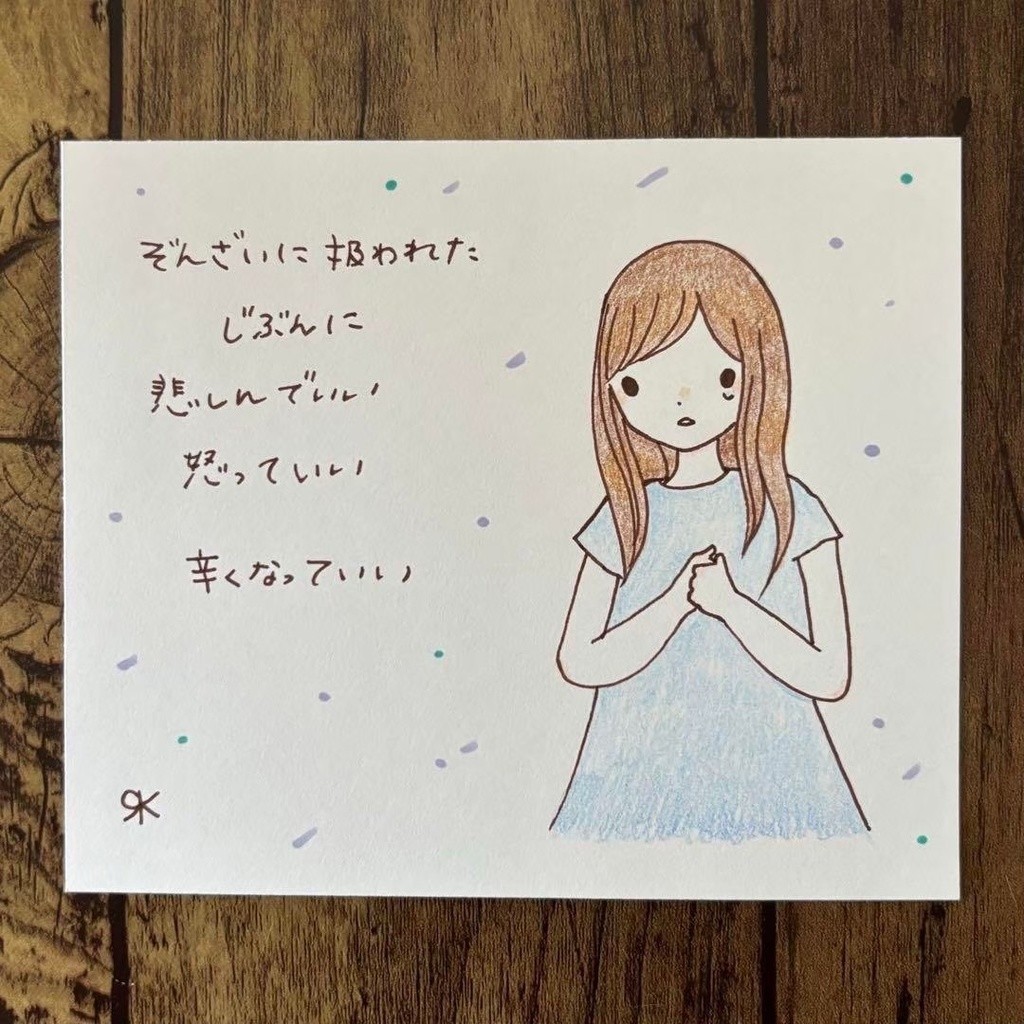 ぞんざいに扱われた
じぶんに
悲しんでいい
怒っていい
辛くなっていい